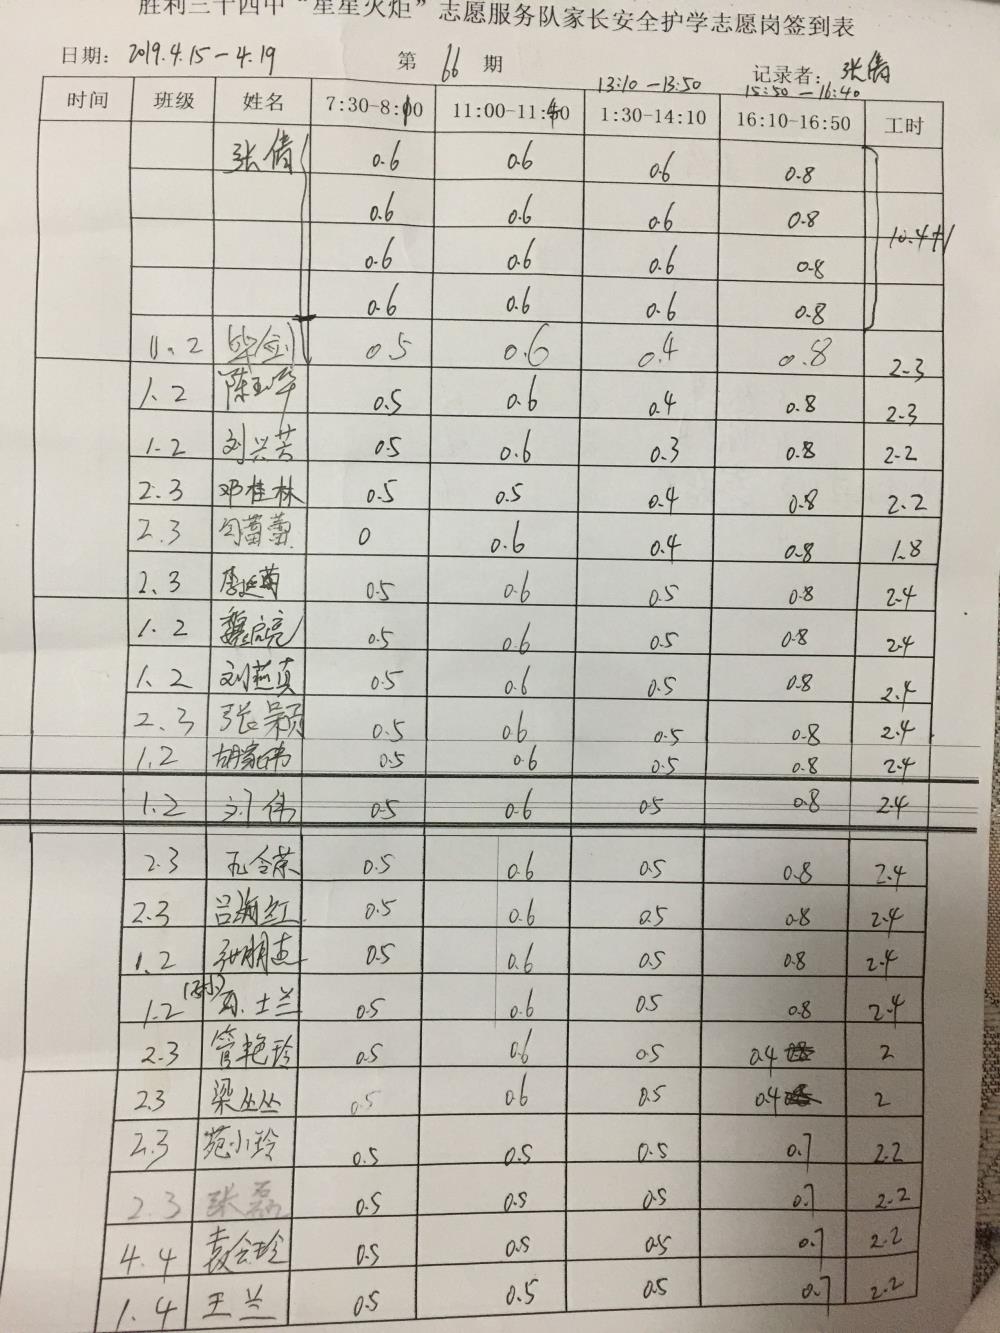 胜利三十四中“星星火炬”志愿服务队家长安全护学志愿岗签到表
日期：2019.4.15－4.19 第 66 期 记录者：张倩
13:10－13:50 15:50－16:40
时间 班级 姓名 7:30-8:10 11:00-11:40 1:30-14:10 16:10-16:50 工时
张倩 0.6 0.6 0.6 0.8
0.6 0.6 0.6 0.8
10.4
0.6 0.6 0.6 0.8
0.6 0.6 0.6 0.8
1.2 毕剑 0.5 0.6 0.4 0.8 2.3
1.2 陈玉华 0.5 0.6 0.4 0.8 2.3
1.2 刘兴芳 0.5 0.6 0.3 0.8 2.2
2.3 邓桂林 0.5 0.5 0.4 0.8 2.2
2.3 蕾蕾 0 0.6 0.4 0.8 1.8
2.3 0.5 0.6 0.5 0.8 2.4
1.2 魏启亮 0.5 0.6 0.5 0.8 2.4
1.2 刘燕真 0.5 0.6 0.5 0.8 2.4
2.3 张颖 0.5 0.6 0.5 0.8 2.4
1.2 胡家伟 0.5 0.6 0.5 0.8 2.4
1.2 刘伟 0.5 0.6 0.5 0.8 2.4
2.3 孔令荣 0.5 0.6 0.5 0.8 2.4
2.3 吕海红 0.5 0.6 0.5 0.8 2.4
1.2 0.5 0.6 0.5 0.8 2.4
1.2 士兰 0.5 0.6 0.5 0.8 2.4
2.3 管艳玲 0.5 0.6 0.5 0.4 2
2.3 梁丛丛 0.5 0.6 0.5 0.4 2
2.3 苑小玲 0.5 0.5 0.5 0.7 2.2
2.3 张磊 0.5 0.5 0.5 0.7 2.2
4.4 袁会玲 0.5 0.5 0.5 0.7 2.2
1.4 王兰 0.5 0.5 0.5 0.7 2.2